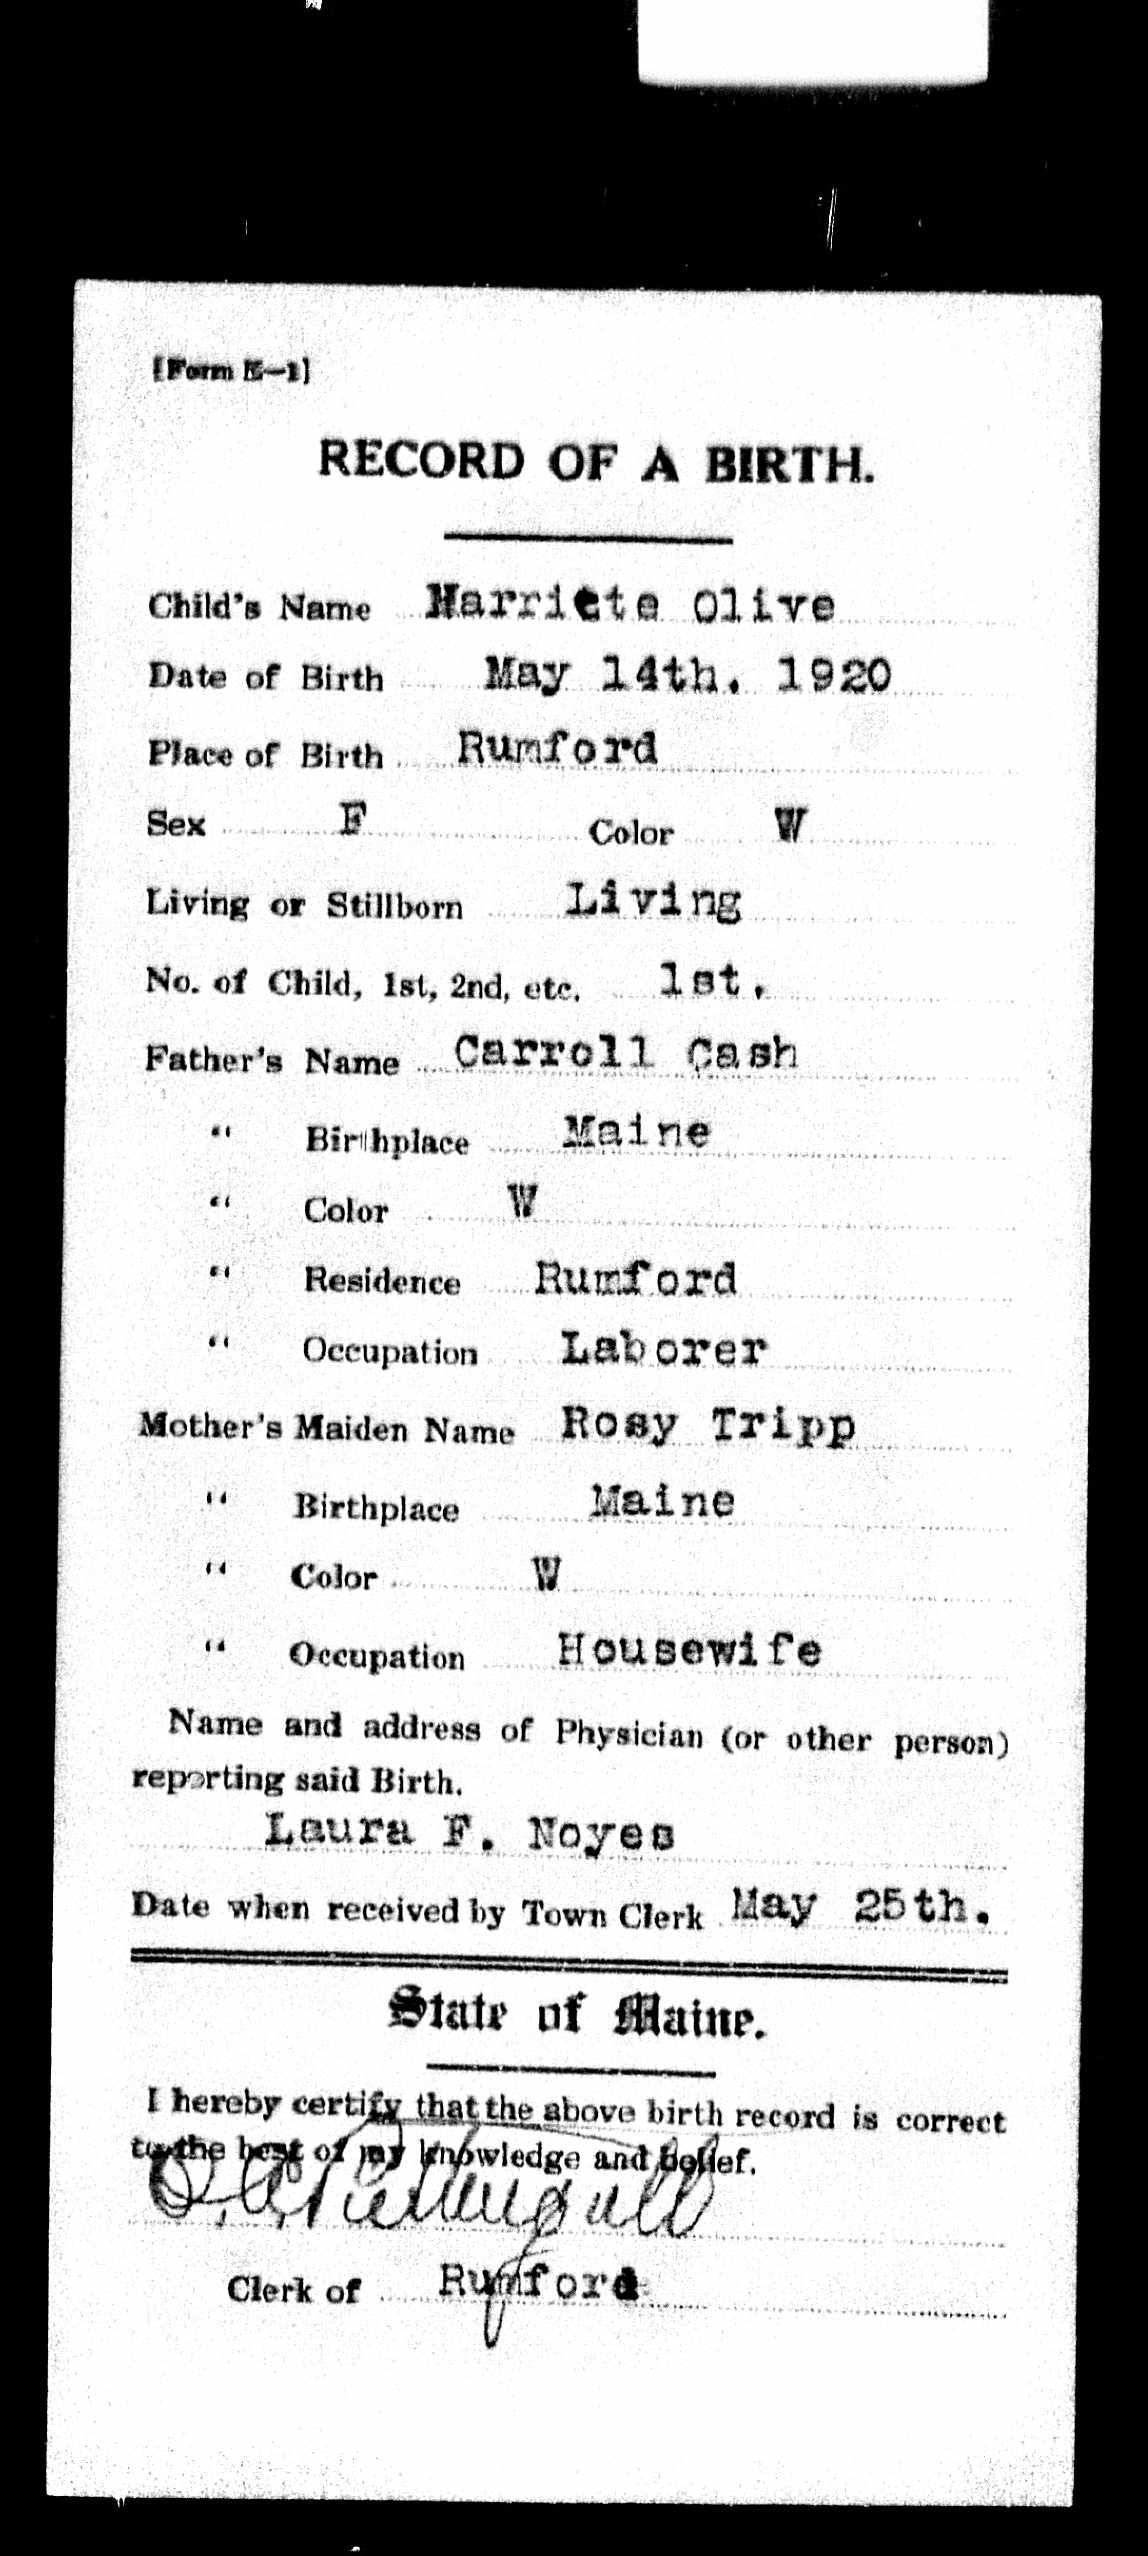 [Form E—1]
RECORD OF A BIRTH.
Child's Name Harriete Olive
Date of Birth May 14th. 1920
Place of Birth Rumford
Sex F Color W
Living or Stillborn Living
No. of Child, 1st, 2nd, etc. 1st.
Father's Name Carroll Cash
" Birthplace Maine
" Color W
" Residence Rumford
" Occupation Laborer
Mother's Maiden Name Rosy Tripp
" Birthplace Maine
" Color W
" Occupation Housewife
Name and address of Physician (or other person)
reporting said Birth.
Laura F. Noyes
Date when received by Town Clerk May 25th.
State of Maine.
I hereby certify that the above birth record is correct
to the best of my knowledge and belief.
Clerk of Rumford